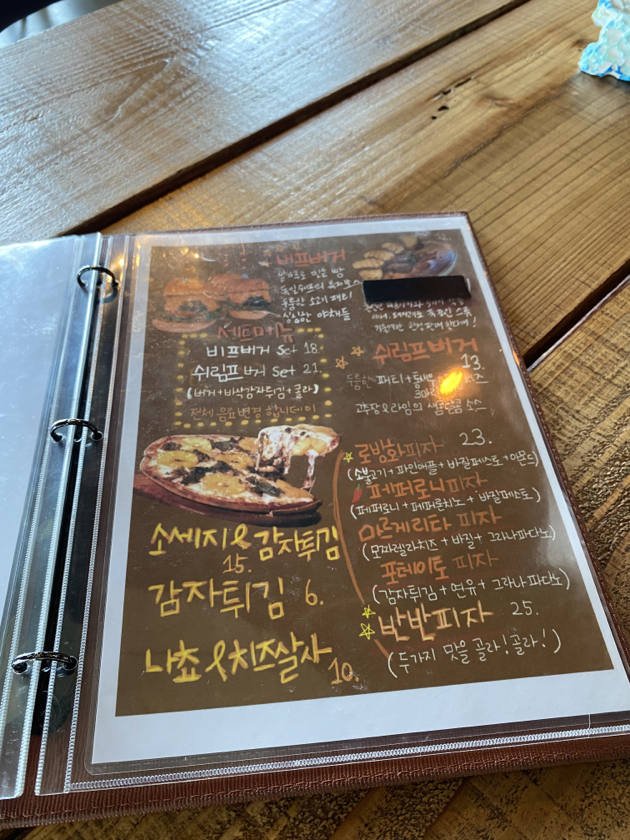 비프버거
쌀가루로 만든 빵
두툼한 소고기 패티
싱싱한 야채들
세트메뉴
비프버거 Set 18.
쉬림프 버거 Set 21.
(버거+바삭감자튀김+콜라)
전체 음료변경 합니데이
쉬림프버거
13.
두툼한 패티+통새
과일의 새콤달콤 소스
로방화피자 23.
(소불고기+파인애플+바질페스토+아몬드)
페퍼로니피자
(페퍼로니+페퍼론치노+바질페스토)
마르게리타 피자
(모짜렐라치즈+바질+그라나파다노)
포테이토 피자
(감자튀김+연유+그라나파다노)
반반피자 25.
(두가지 맛을 골라!골라!)
소세지&감자튀김
15.
감자튀김 6.
나쵸&치즈살사
10.